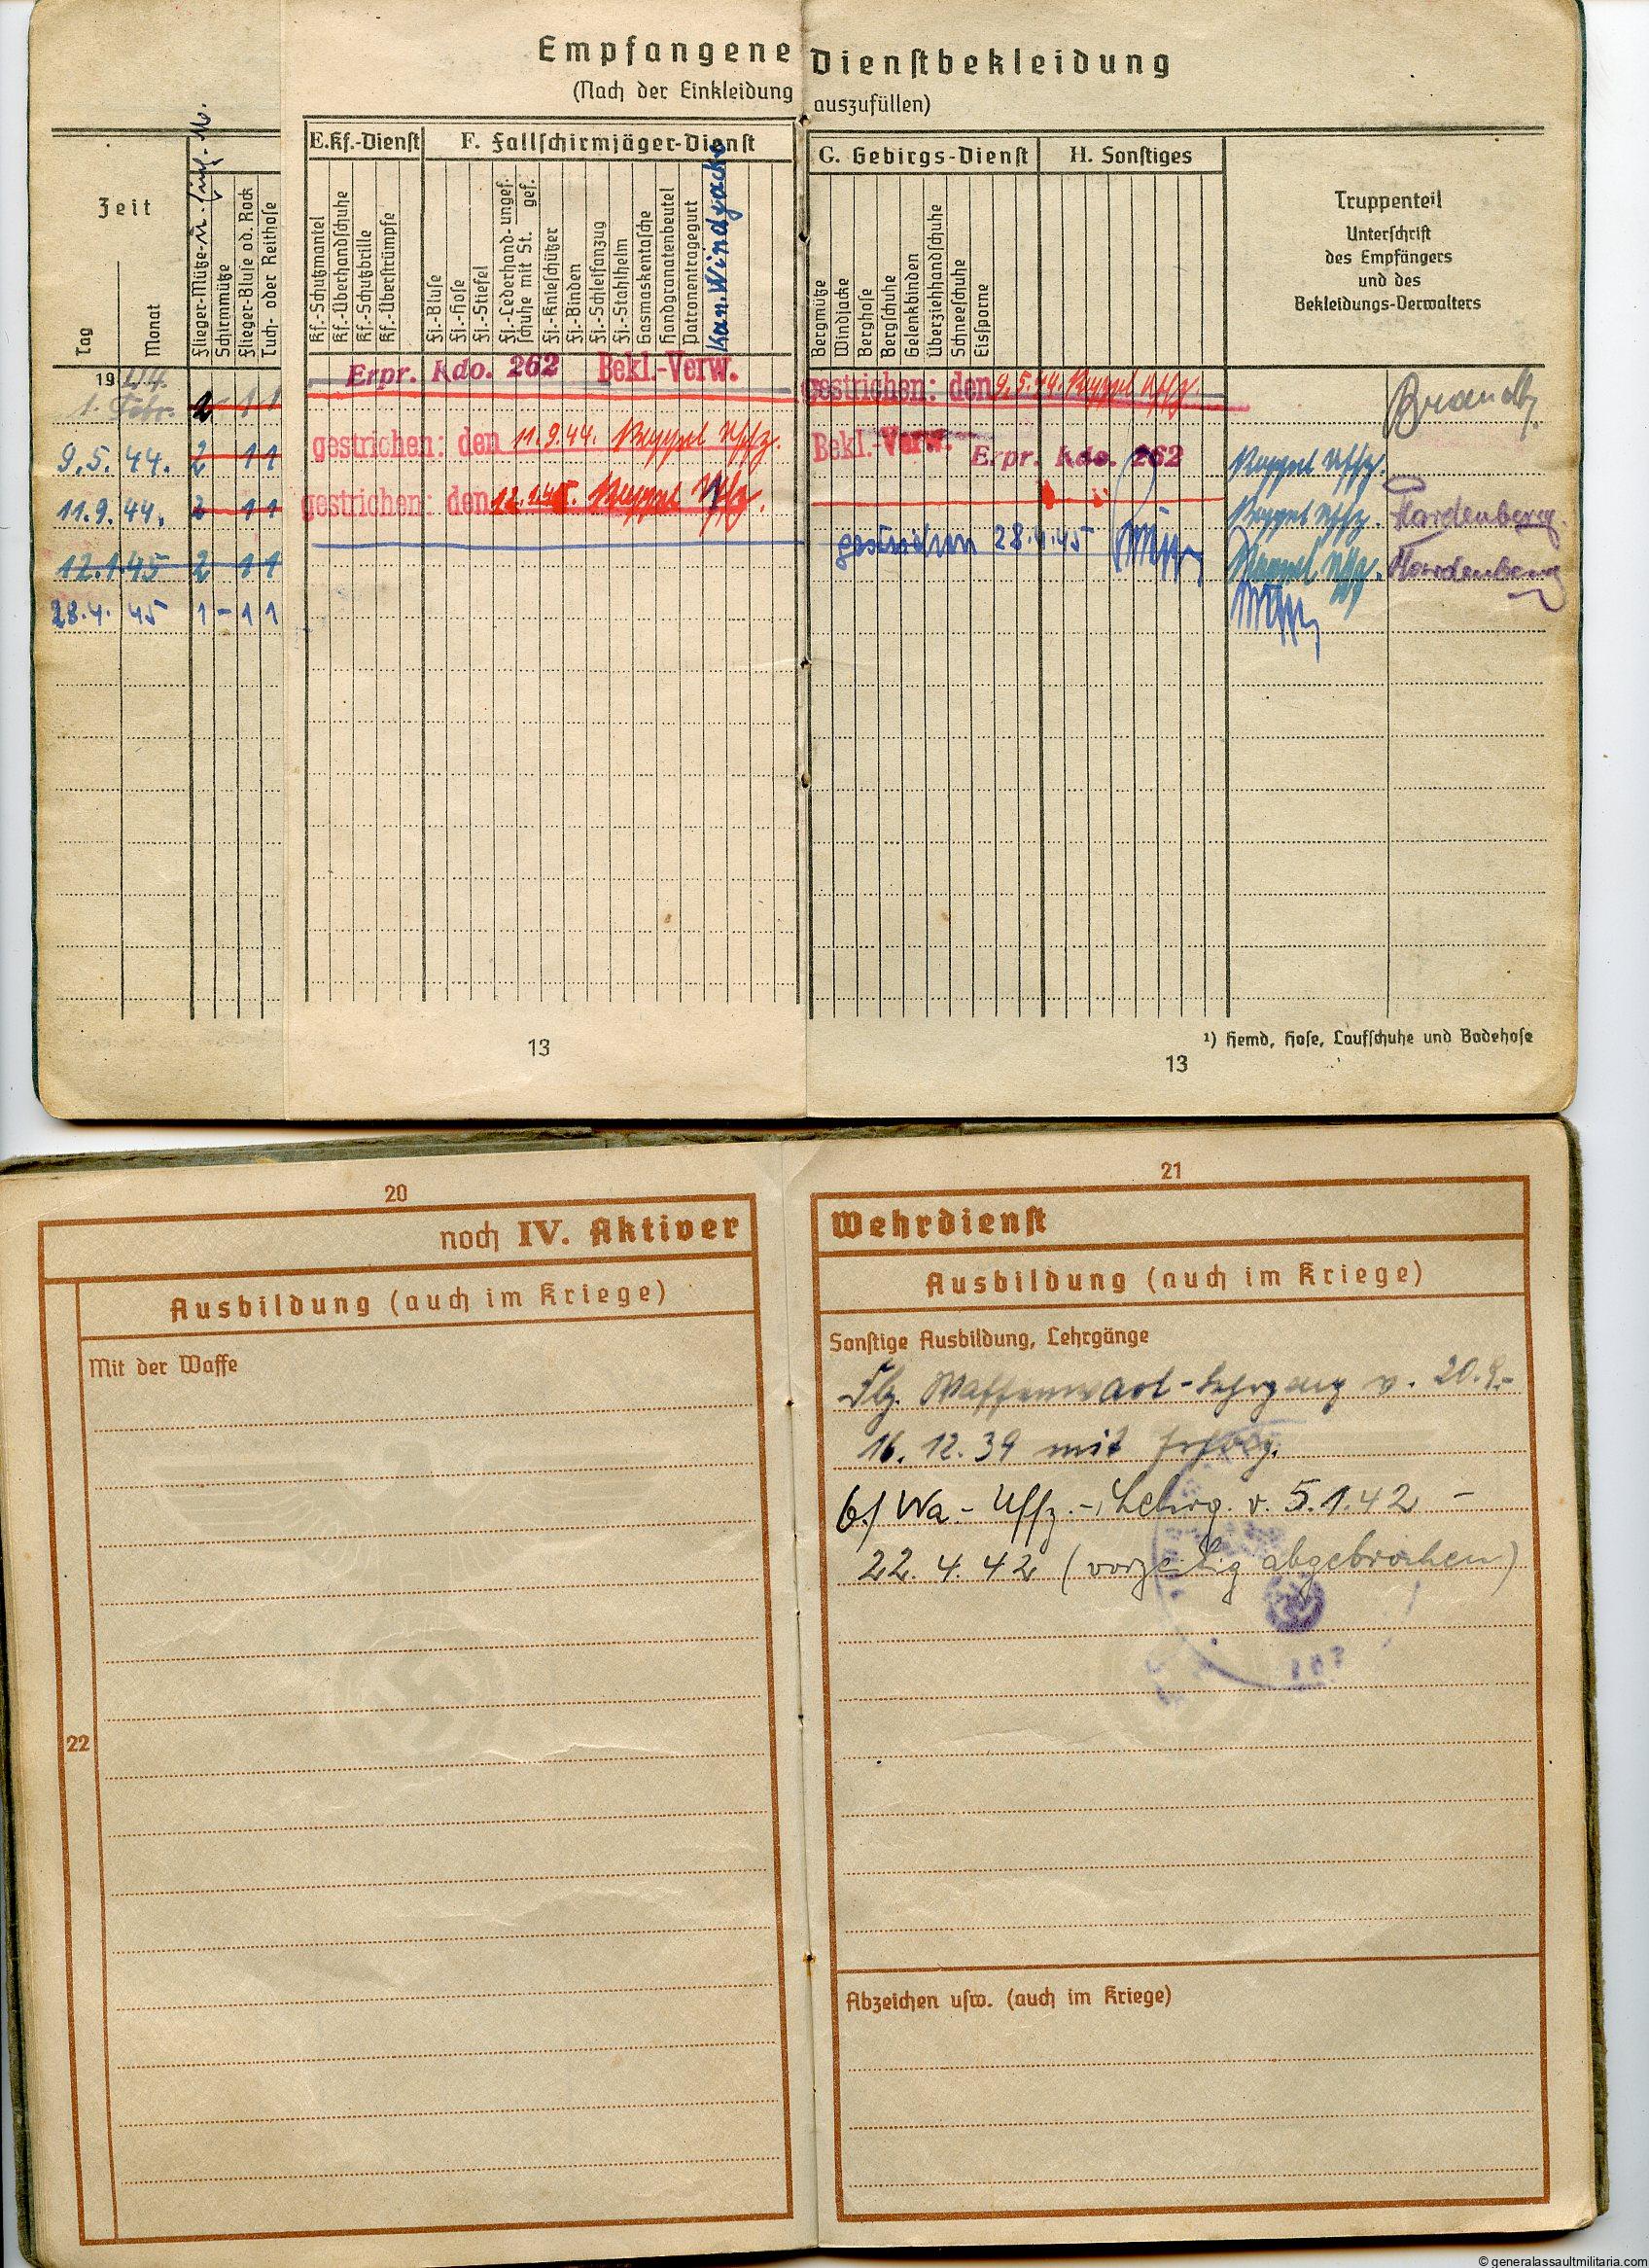 Empfangene Dienstbekleidung
(Nach der Einkleidung auszufüllen)
Zeit
Tag
Monat
Flieger-Mütze u.
Schirmmütze
Flieger-Bluse od. Rock
Tuch- oder Reithose
E. Kf.-Dienst
Kf.-Schutzmantel
Kf.-Überhandschuhe
Kf.-Schutzbrille
Kf.-Überstrümpfe
F. Fallschirmjäger-Dienst
Fj.-Bluse
Fj.-Hose
Fj.-Stiefel
Fj.-Lederhand- ungef.
schuhe mit St. gef.
Fj.-Knieschützer
Fj.-Binden
Fj.-Schleifanzug
Fj.-Stahlhelm
Gasmaskentasche
Handgranatenbeutel
Patronentragegurt
Kan. Windjacke
G. Gebirgs-Dienst
Bergmütze
Windjacke
Berghose
Bergschuhe
Gelenkbinden
Überziehhandschuhe
Schneeschuhe
Eissporne
H. Sonstiges
Truppenteil
Unterschrift
des Empfängers
und des
Bekleidungs-Verwalters
1944
1. Febr. 2 - 1 1 Erpr. Kdo. 262 Bekl.-Verw. gestrichen: den 9.5.44. Uffz. Brandt
9.5.44. 2 1 1 gestrichen: den 11.9.44. Uffz. Bekl.-Verw. Erpr. Kdo. 262 Uffz.
11.9.44. 2 1 1 gestrichen: den 12.1.45. Uffz. Hardenberg
12.1.45 2 1 1 gestrichen 28.4.45 Uffz. Hardenberg
28.4.45 1 - 1 1
13
¹) Hemd, Hose, Laufschuhe und Badehose
13
20
noch IV. Aktiver
Ausbildung (auch im Kriege)
Mit der Waffe
22
21
Wehrdienst
Ausbildung (auch im Kriege)
Sonstige Ausbildung, Lehrgänge
Flg. Waffenwart-Lehrgang v. 20.9.-
16.12.39 mit Erfolg.
b./ Wa.-Uffz.-Lehrg. v. 5.1.42 -
22.4.42 (vorzeitig abgebrochen)
Abzeichen usw. (auch im Kriege)
© generalassaultmilitaria.com